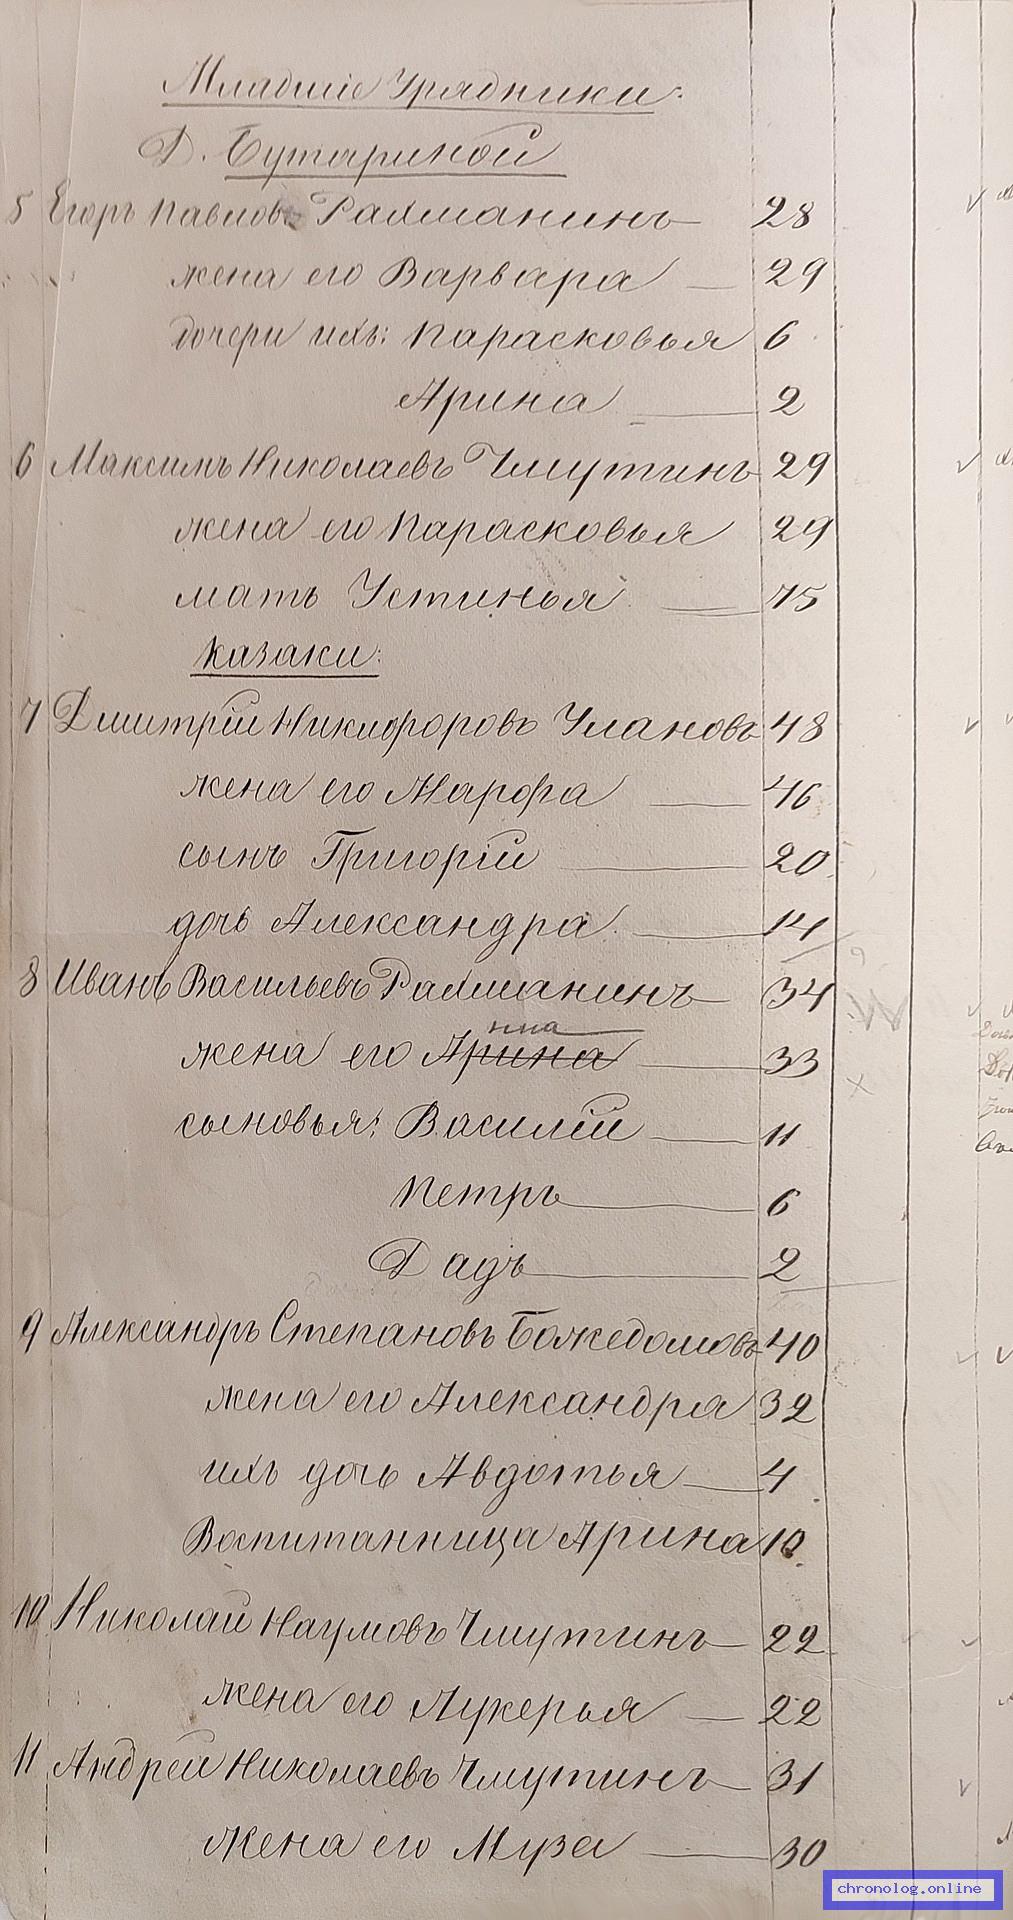 Младшіе Урядники:
Д. Бутариной
5 Егоръ Павловъ Рахманинъ 28
жена его Варвара 29
дочери ихъ: Парасковья 6
Арина 2
6 Максимъ Николаевъ Чмутинъ 29
жена его Парасковья 29
мать Устинья 75
Казаки:
7 Дмитрій Никифоровъ Улановъ 48
жена его Марфа 46
сынъ Григорій 20
дочь Александра 14
8 Иванъ Васильевъ Рахманинъ 34
нна
жена его Арина 33
сыновья: Василій 11
Петръ 6
Дадъ 2
9 Александръ Степановъ Божедомовъ 40
жена его Александра 32
ихъ дочь Авдотья 4
Воспитанница Арина 10
10 Николай Наумовъ Чмутинъ 22
жена его Лукерья 22
11 Андрей Николаевъ Чмутинъ 31
жена его Муза 30
chronolog.online